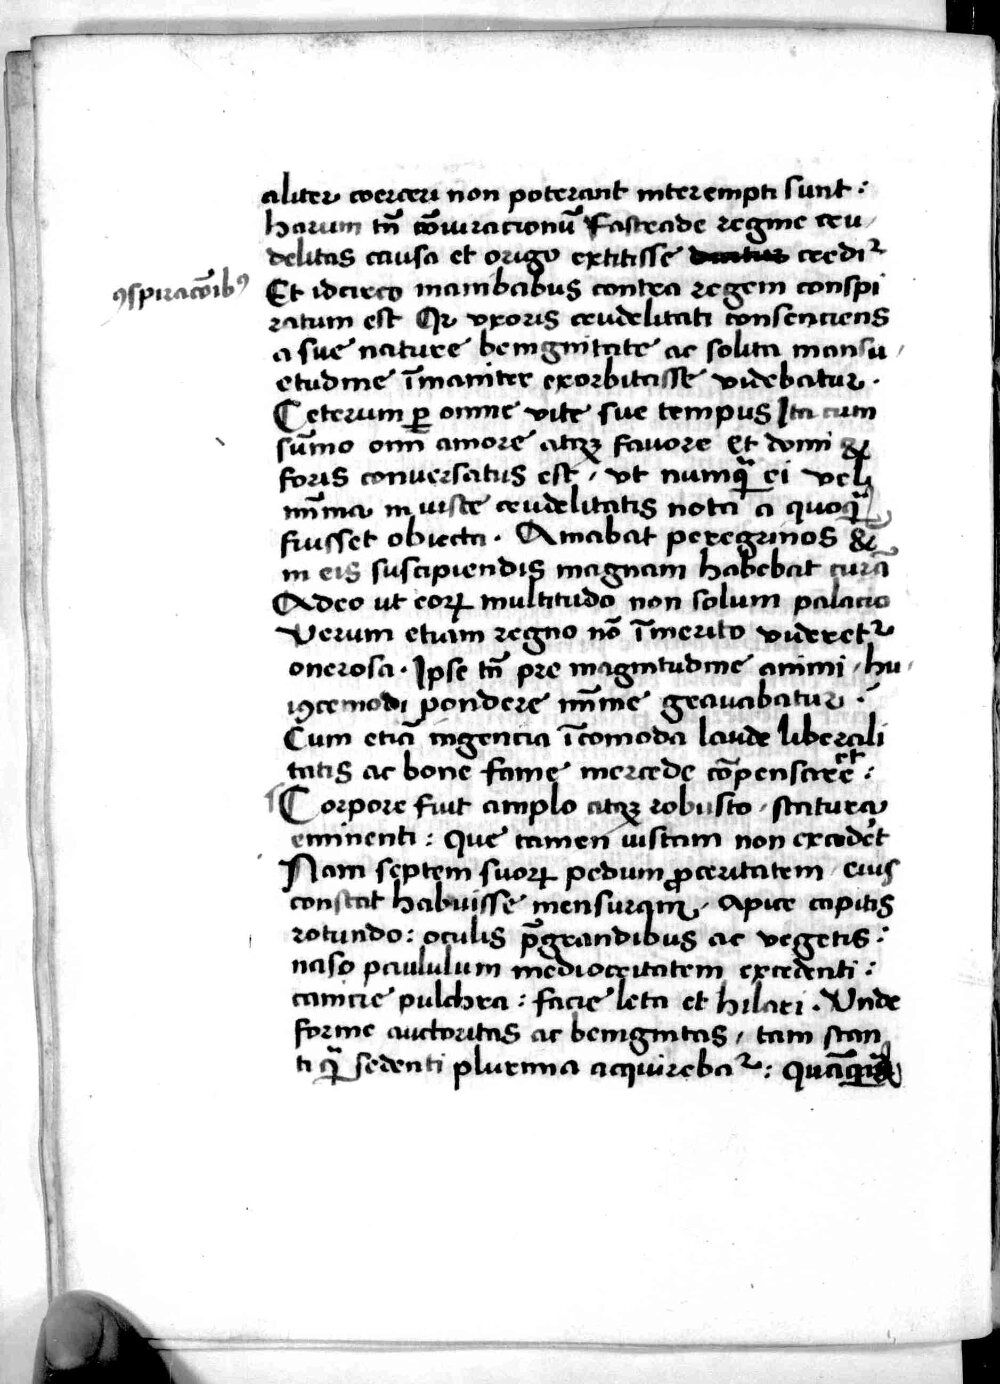 aliter coerceri non poterant interempti sunt :
harum tn̄ cōiuracionū Fastrade regine cru
delitas causa et origo extitisse credit͛
ꝯspiracōibꝫ
Et idcirco in ambabus contra regem conspi
ratum est Qr vxoris crudelitati consenciens
a sue nature benignitate ac solita mansu
etudine īmaniter exorbitasse videbatur .
Ceterum ꝑ omne vite sue tempus Ita cum
sūmo oīm amore atqꝫ favore Et domi &
foris conversatus est / vt numqᷓ ei vel
mīma iniuste crudelitatis nota a quoqᷓ
fuisset obiecta . Amabat peregrinos &
in eis suscipiendis magnam habebat curā
Adeo ut eoꝝ multitudo non solum palacio
Verum etiam regno nō īmerito videret͛
onerosa . Ipse tn̄ pre magnitudine animi / hu
iꝯcemodi pondere mīme gravabatur .
Cum etiā ingencia īcomoda laude liberali
tatis ac bone fame mercede cōpensaret :
Corpore fuit amplo atqꝫ robusto / statura
eminenti : Que tamen iustam non excederet
Nam septem suoꝝ pedum ꝓceritatem / eius
constat habuisse mensuram / Apice capitis
rotundo : oculis p̄grandibus ac vegetis :
naso paululum mediocritatem excedenti :
canicie pulchra : facie leta et hilari . Vnde
forme auctoritas ac benignitas / tam stan
ti qᷓ sedenti plurima acquireba͛ :